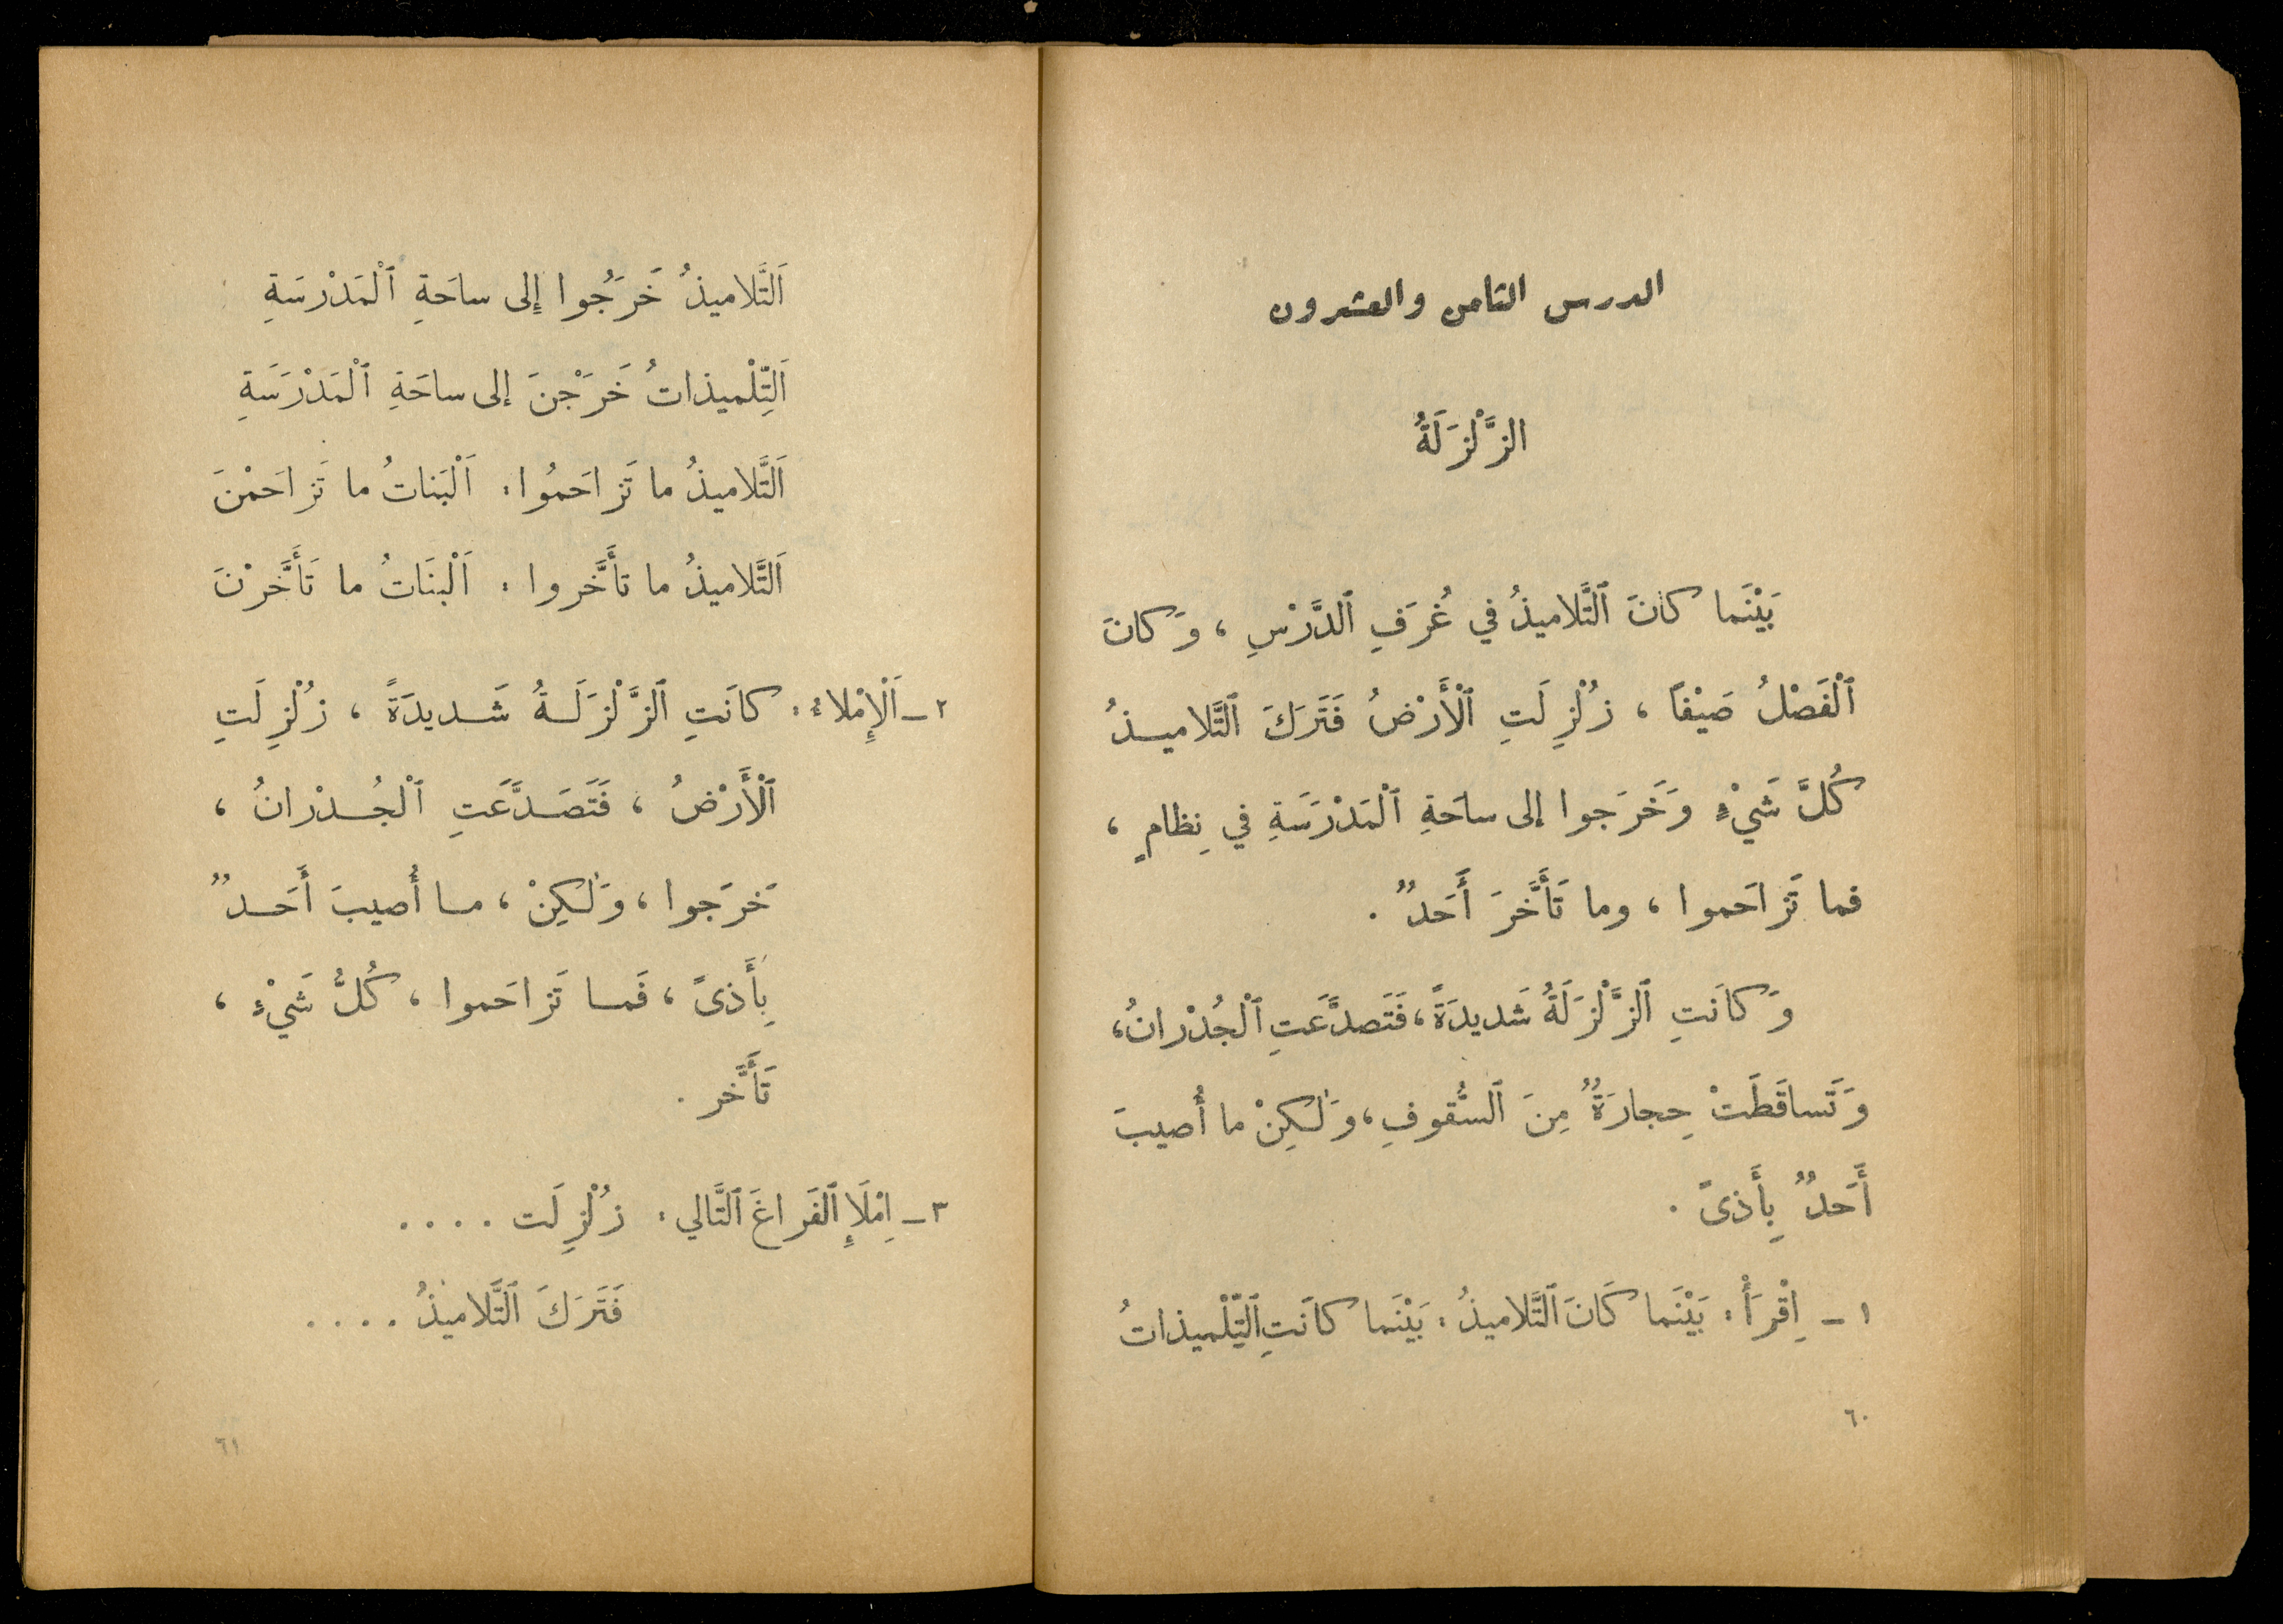 الدرس الثامن والعشرون
الزَّلْزَلَةُ
بَيْنَما كانَ ٱلتَّلاميذُ في غُرَفِ ٱلدَّرْسِ ، وَكانَ
ٱلْفَصْلُ صَيْفاً ، زُلْزِلَتِ ٱلْأَرْضُ فَتَرَكَ ٱلتَّلاميذُ
كُلَّ شَيْءٍ وَخَرَجوا إلى ساحَةِ ٱلْمَدْرَسَةِ في نِظامٍ ،
فما تَزاحَموا ، وما تَأَخَّرَ أَحَدٌ .
وَكانَتِ ٱلزَّلْزَلَةُ شَديدَةً ، فَتَصدَّعَتِ ٱلْجُدْرانُ ،
وَتَساقَطَتْ حِجارَةٌ مِنَ ٱلسُّقوفِ ، وَلٰكِنْ ما أُصيبَ
أَحَدٌ بِأَذىً .
١ – اِقْرَأْ : بَيْنَما كَانَ ٱلتَّلاميذُ : بَيْنَما كانَتِ ٱلتِّلْميذاتُ
٦٠
اَلتَّلاميذُ خَرَجُوا إلى ساحَةِ ٱلْمَدْرسَةِ
اَلتِّلْميذاتُ خَرَجْنَ إلى ساحَةِ ٱلْمَدْرَسَةِ
اَلتَّلاميذُ ما تَزاحَمُوا : اَلْبَناتُ ما تَزاحَمْنَ
اَلتَّلاميذُ ما تأَخَّروا : اَلْبنَاتُ ما تَأَخَّرْنَ
٢ – اَلْإمْلاءُ : كانَتِ ٱلزَّلْزَلَةُ شَديدَةً ، زُلْزِلَتِ
ٱلْأَرْضُ ، فَتَصَدَّعَتِ ٱلْجُدْرانُ ،
خَرجَوا ، وَلٰكِنْ ، ما أُصيبَ أَحَدٌ
بِأَذىً ، فَما تَزاحَموا ، كُلُّ شَيْءٍ ،
تَأَخَّر .
٣ – اِمْلَإِ ٱلفَراغَ ٱلتَّالي : زُلْزِلَت ....
فَتَرَكَ ٱلتَّلاميذُ ....
٦١